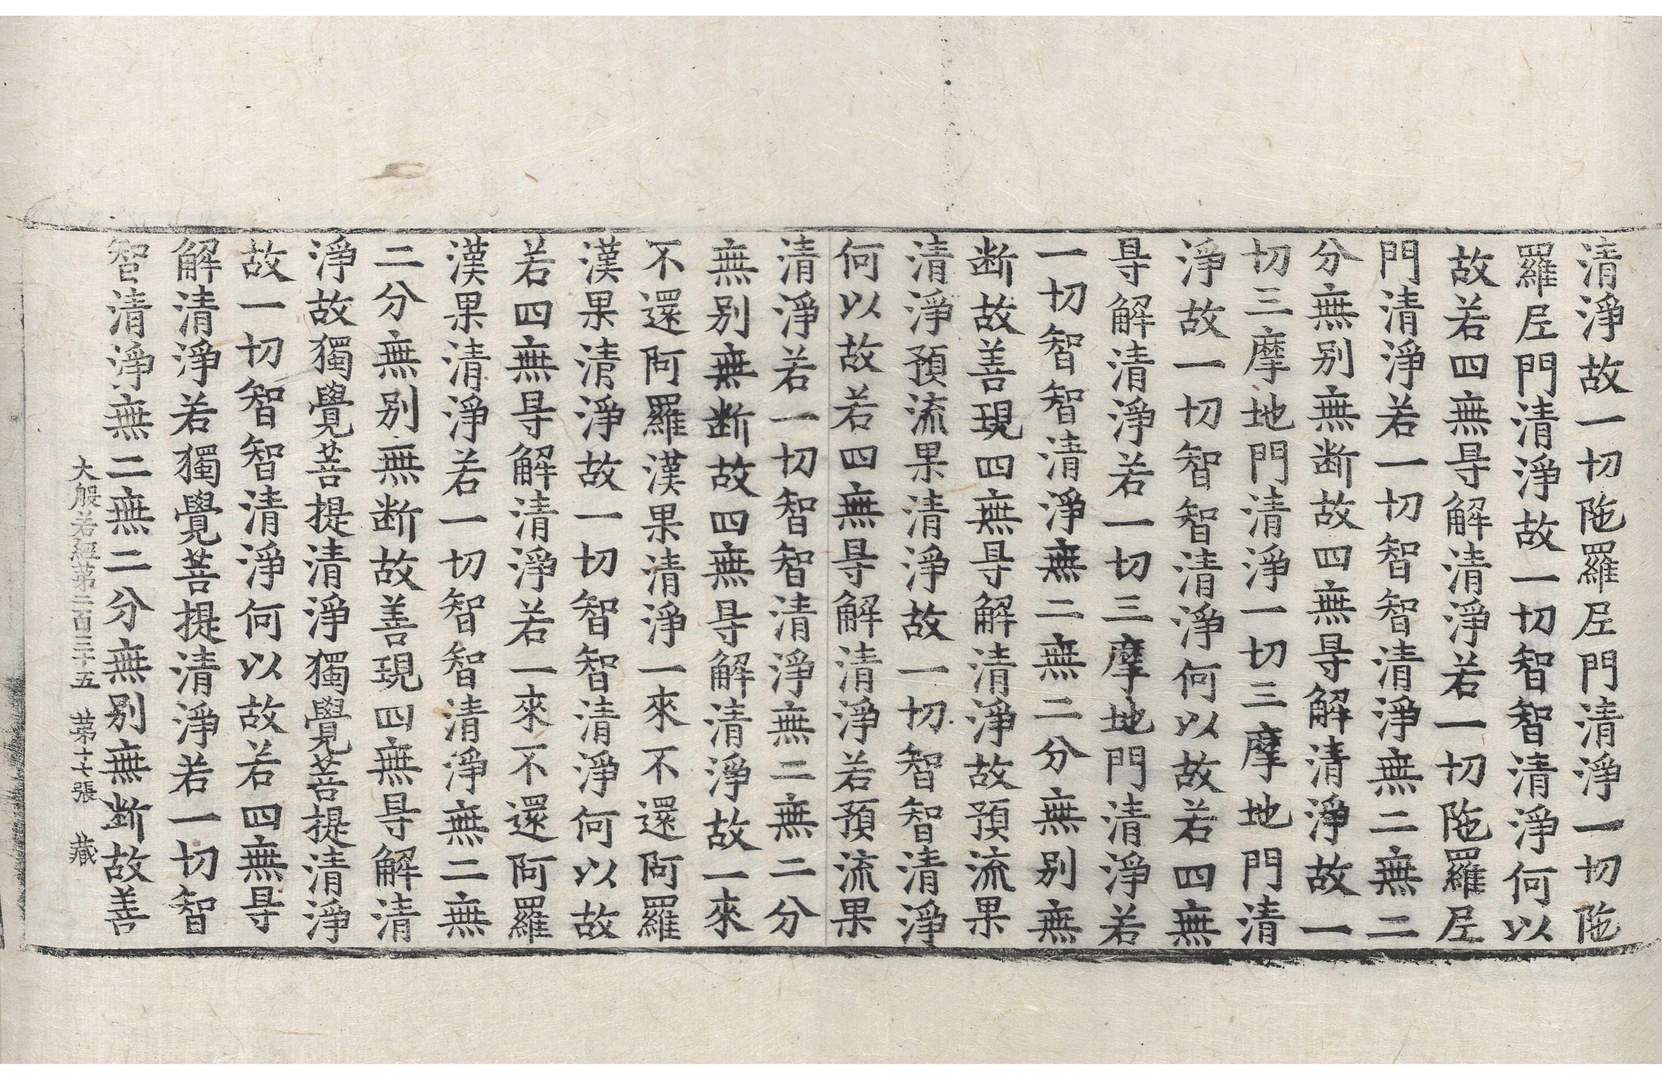 清淨故一切陁羅尼門清淨一切陁
羅尼門清淨故一切智智清淨何以
故若四無㝵解清淨若一切陁羅尼
門清淨若一切智智清淨無二無二
分無别無断故四無㝵解清淨故一
切三摩地門清淨一切三摩地門清
淨故一切智智清淨何以故若四無
㝵解清淨若一切三摩地門清淨若
一切智智清淨無二無二分無别無
断故善現四無㝵解清淨故預流果
清淨預流果清淨故一切智智清淨
何以故若四無㝵解清淨若預流果
清淨若一切智智清淨無二無二分
無别無断故四無㝵解清淨故一來
不還阿羅漢果清淨一來不還阿羅
漢果清淨故一切智智清淨何以故
若四無㝵解清淨若一來不還阿羅
漢果清淨若一切智智清淨無二無
二分無别無断故善現四無㝵解清
淨故獨覺菩提清淨獨覺菩提清淨
故一切智智清淨何以故若四無㝵
解清淨若獨覺菩提清淨若一切智
智清淨無二無二分無别無断故善
大般若經苐二百三十五 苐十七張 藏